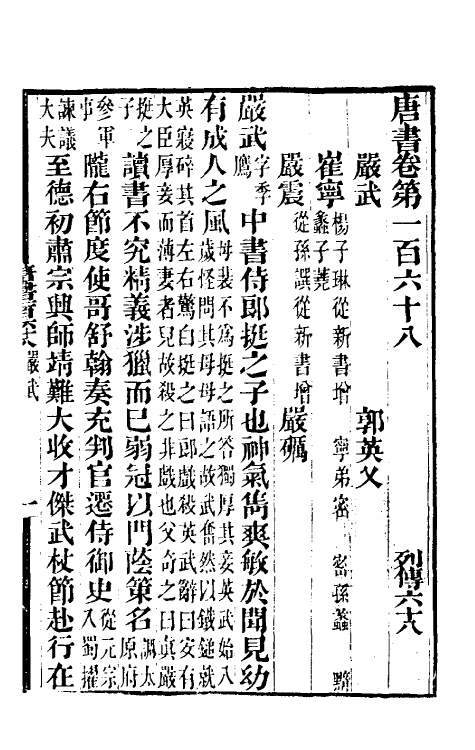 唐書卷第一百六十八 列傳六十八
嚴武 郭英乂
崔寧 楊子琳從新書增 寧弟密 密孫蠡 黯
蠡子蕘
嚴震 從孫譔從新書增 嚴礪
嚴武字季鷹中書侍郎挺之子也神氣雋爽敏於聞見幼
有成人之風母裴不為挺之所答獨厚其妾英武始八
歲怪問其母母語之故武奮然以鐵鎚就
英寢碎其首左右驚白挺之曰郎戲殺英武辭曰安有
大臣厚妾而薄妻者兒故殺之非戲也父奇之曰真嚴
挺之子讀書不究精義涉獵而已弱冠以門蔭策名調太原府
參軍事隴右節度使哥舒翰奏充判官遷侍御史從元宗入蜀擢
諫議大夫至德初肅宗興師靖難大收才傑武杖節赴行在
嚴武
一